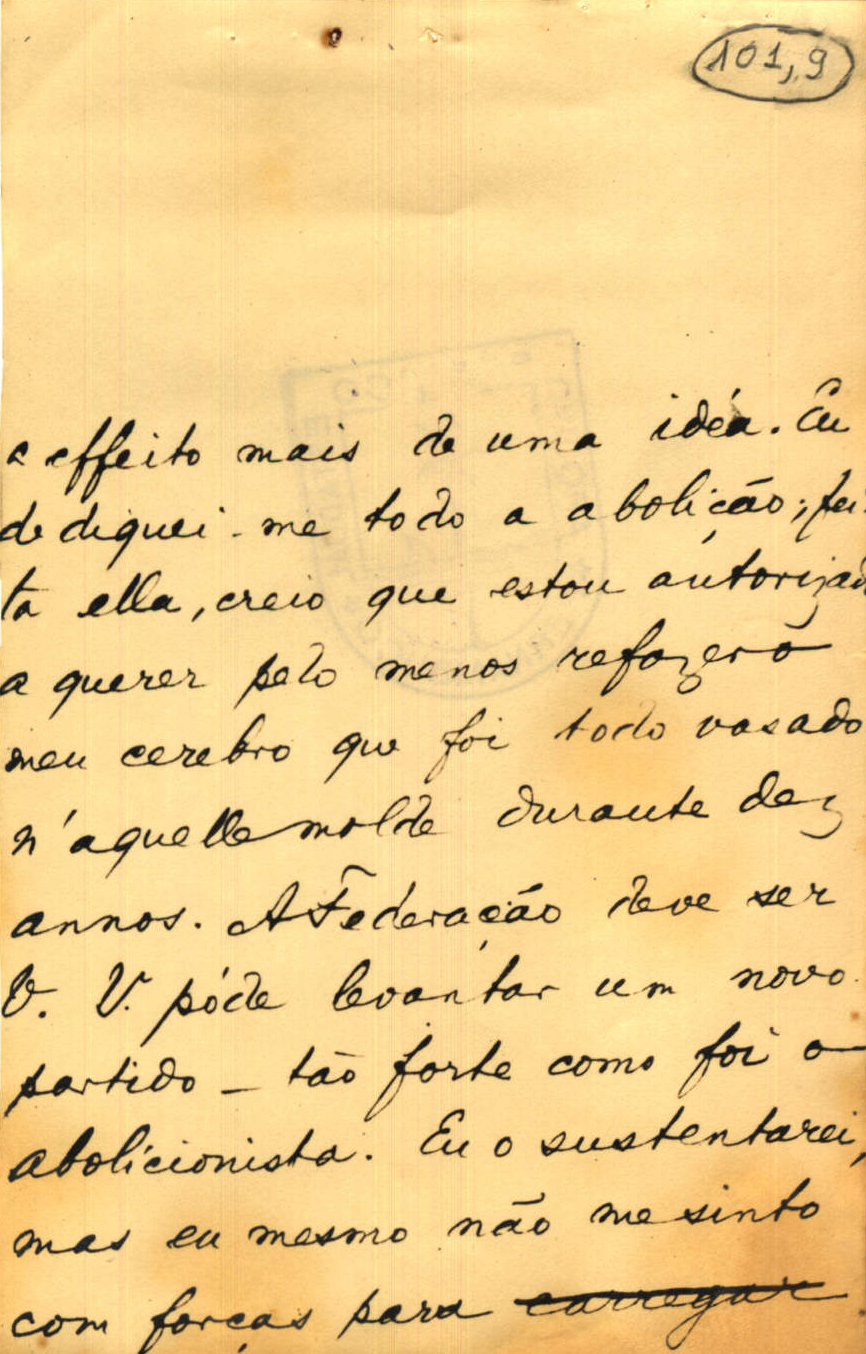 101,9
a effeito mais de uma idéa. Eu
dediquei-me todo a abolição; fei-
ta ella, creio que estou autorizad
a querer pelo menos refazer o
meu cerebro que foi todo vasado
n'aquelle molde durante dez
annos. A Federação deve ser
V. V. póde levantar um novo
partido – tão forte como foi o
abolicionista. Eu o sustentarei,
mas eu mesmo não me sinto
com forças para carregar